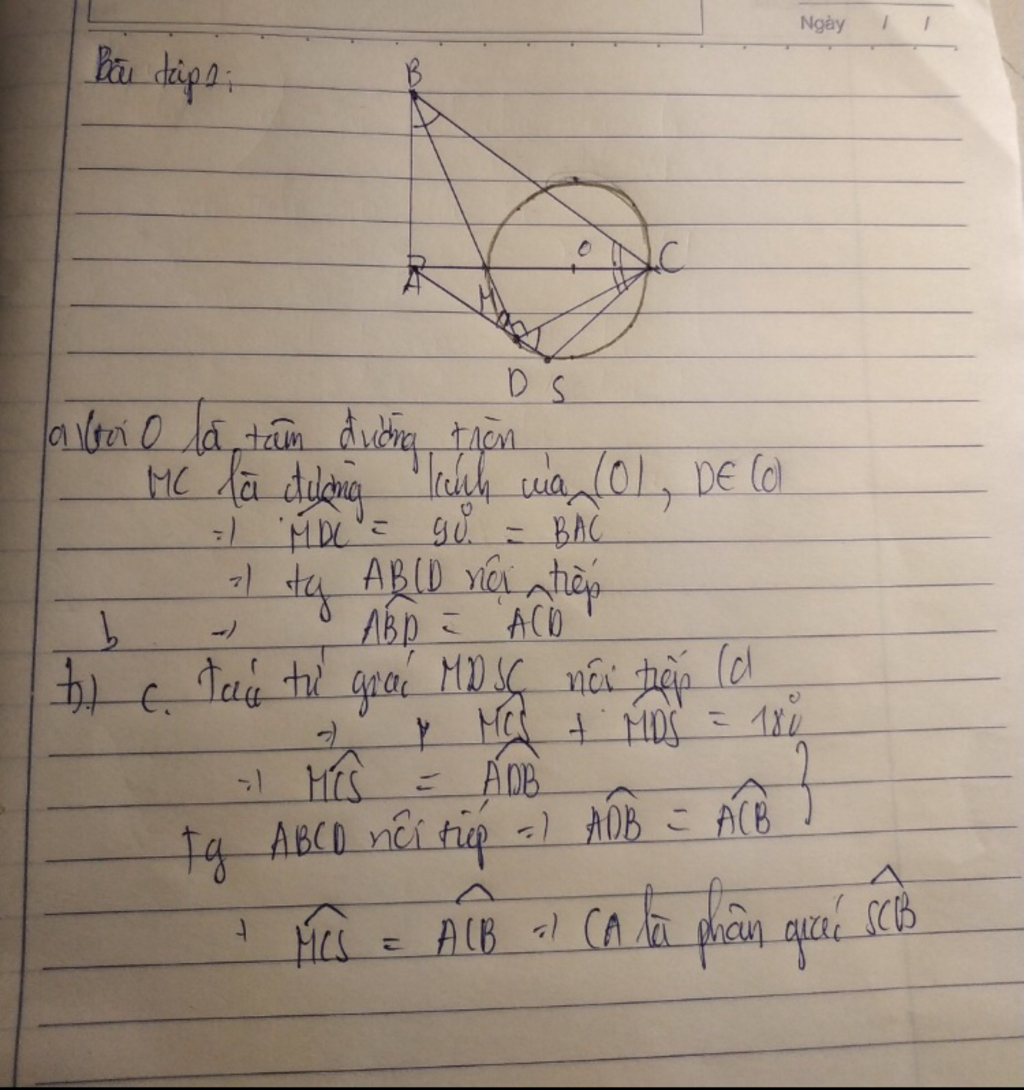 Ngày / /
Bài tập 2:
B
O
C
A
M
D S
a) Gọi O là tâm đường tròn
MC là đường kính của (O), D∈(O)
=) MDC = 90° = BAC
=) tg ABCD nội tiếp
b =) ABD = ACD
b.) c. Tacó tứ giác MDSC nội tiếp (O)
=) MCS + MDS = 180°
=) MCS = ADB }
Tg ABCD nội tiếp =) ADB = ACB
+ MCS = ACB =) CA là phân giác SCB